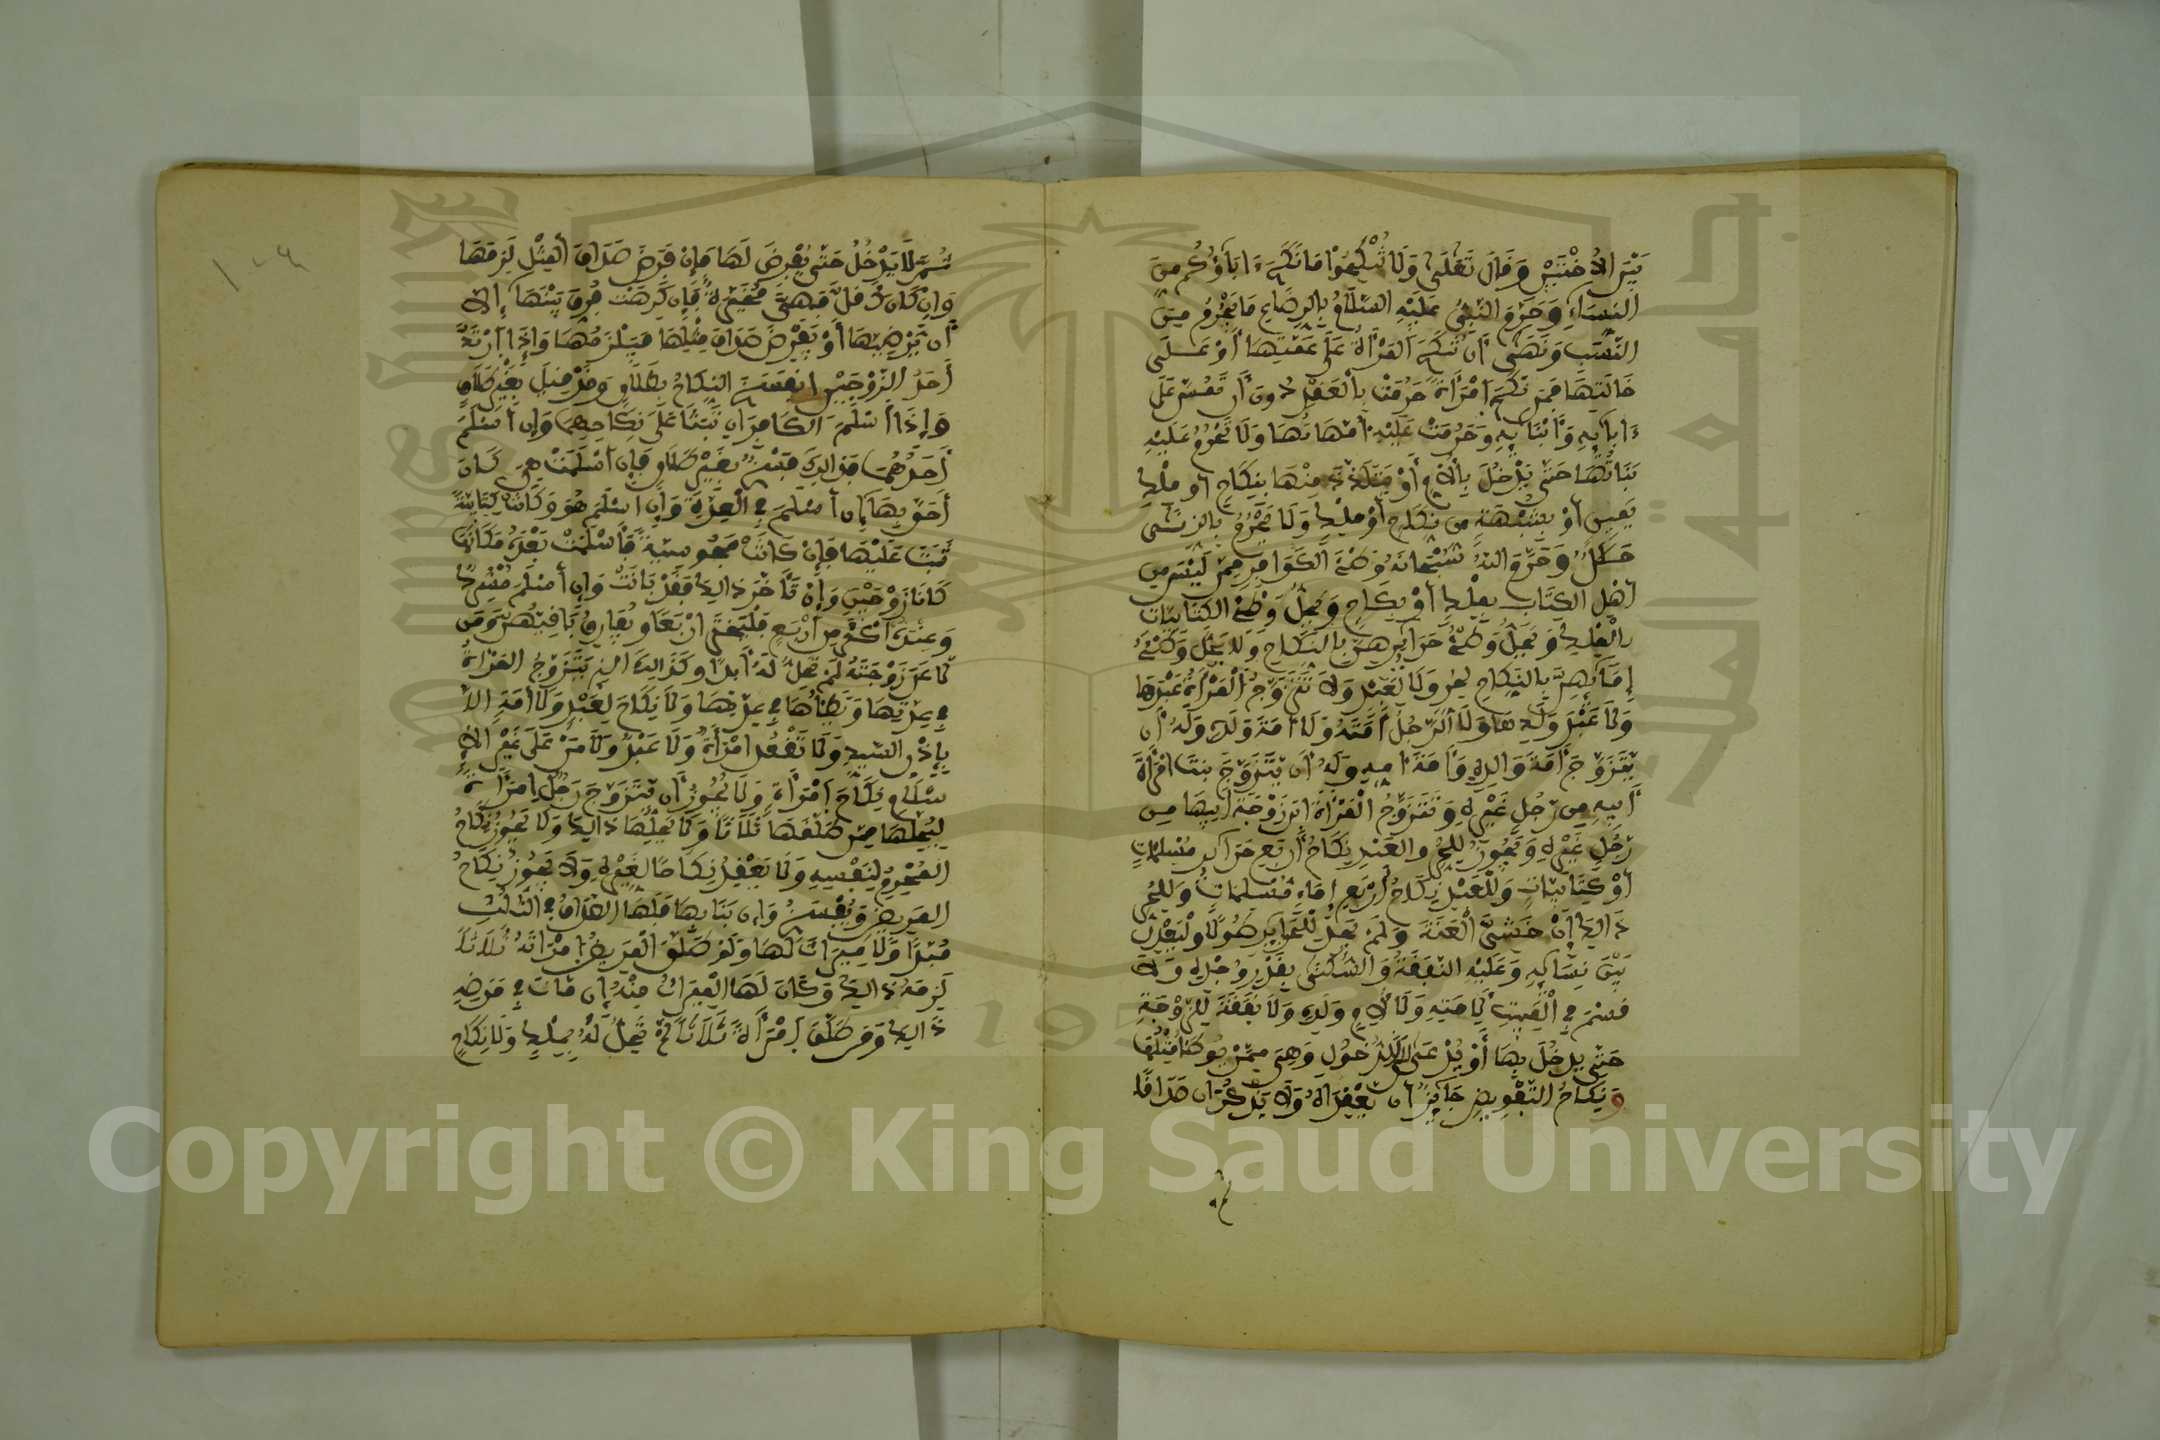 بَيْنَ الاُخْتَيْنِ وَقَالَ تَعَلَى وَلَا تُنْكِحُوا مَا نَكَحَ ءَابَاؤُكُم مِنَ
النِّسَاءِ وَحَرَّمَ النَّبِيُّ عَلَيْهِ السَّلَامُ بِالرِّضَاعِ مَا يَحْرُمُ مِنَ
النَّسَبِ وَنَهَى أَنْ تُنْكَحَ الْمَرْأَةُ عَلَى عَمَّتِهَا أَوْ عَلَى
خَالَتِهَا فَمَنْ نَكَحَ امْرَأَةً حَرُمَتْ بِالْعَقْدِ دُونَ أَنْ تُمَسَّ عَلَى
ءَابَائِهِ وَأَبْنَائِهِ وَحَرُمَتْ عَلَيْهِ أُمَّهَاتُهَا وَلَا تَحْرُمُ عَلَيْهِ
بَنَاتُهَا حَتَّى يَدْخُلَ بِالْأُمِّ أَوْ يَتَلَذَّذَ مِنْهَا بِنِكَاحٍ أَوْ مِلْكِ
يَمِينٍ أَوْ بِشُبْهَةٍ مِنْ نِكَاحٍ أَوْ مِلْكٍ وَلَا يَحْرُمُ بِالزِّنَى
حَلَالٌ وَحَرَّمَ اللهُ سُبْحَانَهُ وَطْءَ الْكَوَافِرِ مِمَّنْ لَيْسَ مِنْ
أَهْلِ الْكِتَابِ بِمِلْكٍ أَوْ نِكَاحٍ وَيَحِلُّ وَطْءُ الْكِتَابِيَّاتِ
بِالْمِلْكِ وَيَحِلُّ وَطْءُ حَرَائِرِهِنَّ بِالنِّكَاحِ وَلَا يَحِلُّ وَطْءُ
إِمَائِهِنَّ بِالنِّكَاحِ لِحُرٍّ وَلَا لِعَبْدٍ وَلَا تَتَزَوَّجُ الْمَرْأَةُ عَبْدَهَا
وَلَا عَبْدَ وَلَدِهَا وَلَا الرَّجُلُ أَمَتَهُ وَلَا أَمَةَ وَلَدِهِ وَلَهُ أَنْ
يَتَزَوَّجَ أَمَةَ وَالِدِهِ وَأَمَةَ أُمِّهِ وَلَهُ أَنْ يَتَزَوَّجَ بِنْتَ امْرَأَةِ
أَبِيهِ مِنْ رَجُلٍ غَيْرِهِ وَتَتَزَوَّجُ الْمَرْأَةُ ابْنَ زَوْجَةِ أَبِيهَا مِنْ
رَجُلٍ غَيْرِهِ وَيَجُوزُ لِلْحُرِّ وَالْعَبْدِ نِكَاحُ أَرْبَعِ حَرَائِرَ مُسْلِمَاتٍ
أَوْ كِتَابِيَّاتٍ وَلِلْعَبْدِ نِكَاحُ أَرْبَعِ إِمَاءٍ مُسْلِمَاتٍ وَلِلْحُرِّ
ذَالِكَ إِنْ خَشِيَ الْعَنَتَ وَلَمْ يَجِدْ لِلْحَرَائِرِ طَوْلًا وَلْيَعْدِلْ
بَيْنَ نِسَائِهِ وَعَلَيْهِ النَّفَقَةُ وَالسُّكْنَى بِقَدْرِ وُجْدِهِ وَلَا
قَسْمَ فِي الْمَبِيتِ لِأَمَتِهِ وَلَا لِأُمِّ وَلَدِهِ وَلَا نَفَقَةَ لِلزَّوْجَةِ
حَتَّى يَدْخُلَ بِهَا أَوْ يُدْعَى لِلدُّخُولِ وَهِيَ مِمَّنْ يُوطَأُ مِثْلُهَا
وَنِكَاحُ التَّفْوِيضِ جَائِزٌ أَنْ يَعْقِدَاهُ وَلَا يَذْكُرَانِ صَدَاقًا
ثُمَّ لَا يَدْخُلُ حَتَّى يُفْرِضَ لَهَا فَإِنْ فَرَضَ صَدَاقَ الْمِثْلِ لَزِمَهَا
وَإِنْ كَانَ أَقَلَّ فَهِيَ مُخَيَّرَةٌ فَإِنْ كَرِهَتْ فُرِّقَ بَيْنَهُمَا إِلَّا
أَنْ يُرْضِيَهَا أَوْ يَفْرِضَ صَدَاقَ مِثْلِهَا فَيَلْزَمُهَا وَإِذَا ارْتَدَّ
أَحَدُ الزَّوْجَيْنِ انْفَسَخَ النِّكَاحُ بِطَلَاقٍ وَقَدْ قِيلَ بِغَيْرِ طَلَاقٍ
وَإِذَا أَسْلَمَ الْكَافِرَانِ ثَبَتَا عَلَى نِكَاحِهِمَا وَإِنْ أَسْلَمَ
أَحَدُهُمَا فَذَالِكَ فَسْخٌ بِغَيْرِ طَلَاقٍ فَإِنْ أَسْلَمَتْ هِيَ كَانَ
أَحَقَّ بِهَا إِنْ أَسْلَمَ فِي الْعِدَّةِ وَإِنْ أَسْلَمَ هُوَ وَكَانَتْ كِتَابِيَّةً
ثَبَتَ عَلَيْهَا فَإِنْ كَانَتْ مَجُوسِيَّةً فَأَسْلَمَتْ بَعْدَهُ مَكَانَهَا
كَانَا زَوْجَيْنِ وَإِنْ تَأَخَّرَ ذَالِكَ فَقَدْ بَانَتْ وَإِنْ أَسْلَمَ مُشْرِكٌ
وَعِنْدَهُ أَكْثَرُ مِنْ أَرْبَعٍ فَلْيَخْتَرْ أَرْبَعًا وَيُفَارِقُ بَاقِيَهُنَّ وَمَنْ
لَاعَنَ زَوْجَتَهُ لَمْ تَحِلَّ لَهُ أَبَدًا وَكَذَالِكَ الَّذِي يَتَزَوَّجُ الْمَرْأَةَ
فِي عِدَّتِهَا وَيَطَؤُهَا فِي عِدَّتِهَا وَلَا نِكَاحَ لِعَبْدٍ وَلَا أَمَةٍ إِلَّا
بِإِذْنِ السَّيِّدِ وَلَا تَعْقِدُ امْرَأَةٌ وَلَا عَبْدٌ وَلَا مَنْ عَلَى غَيْرِ الْإِ
سْلَامِ نِكَاحَ امْرَأَةٍ وَلَا يَجُوزُ أَنْ يَتَزَوَّجَ رَجُلٌ امْرَأَةً
لِيُحِلَّهَا لِمَنْ طَلَّقَهَا ثَلَاثًا وَلَا يُحِلُّهَا ذَالِكَ وَلَا يَجُوزُ نِكَاحُ
الْمُحْرِمِ لِنَفْسِهِ وَلَا يَعْقِدُ نِكَاحًا لِغَيْرِهِ وَلَا يَجُوزُ نِكَاحُ
الْمَرِيضِ وَيُفْسَخُ وَإِنْ بَنَا بِهَا فَلَهَا الصَّدَاقُ فِي الثُّلُثِ
مُبَدَّأً وَلَا مِيرَاثَ لَهَا وَلَوْ طَلَّقَ الْمَرِيضُ امْرَأَتَهُ ثَلَاثًا
لَزِمَهُ ذَالِكَ وَكَانَ لَهَا الْمِيرَاثُ مِنْهُ إِنْ مَاتَ فِي مَرَضِهِ
ذَالِكَ وَمَنْ طَلَّقَ امْرَأَةً ثَلَاثًا لَمْ تَحِلَّ لَهُ بِمِلْكٍ وَلَا نِكَاحٍ
Copyright © King Saud University
جامعة الملك سعود
King Saud University
1957